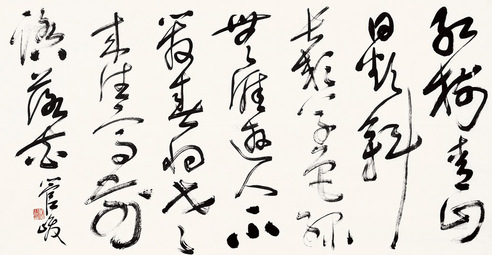 红树青山
日欲斜
长郊草色绿
无涯游人不
管春将老
来往亭前
踏落花
管峻